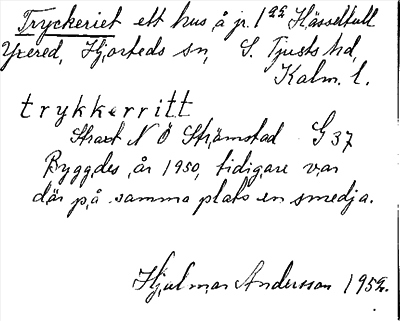 Tryckeriet ett hus å jr. 1²² Hässelkull
Yxered, Hjorteds sn, S. Tjusts hd,
Kalm. l.
trykkerritt
Strax N Ö Strömstad G 37
Byggdes år 1950, tidigare var
där på samma plats en smedja.
Hjalmar Andersson 1952.